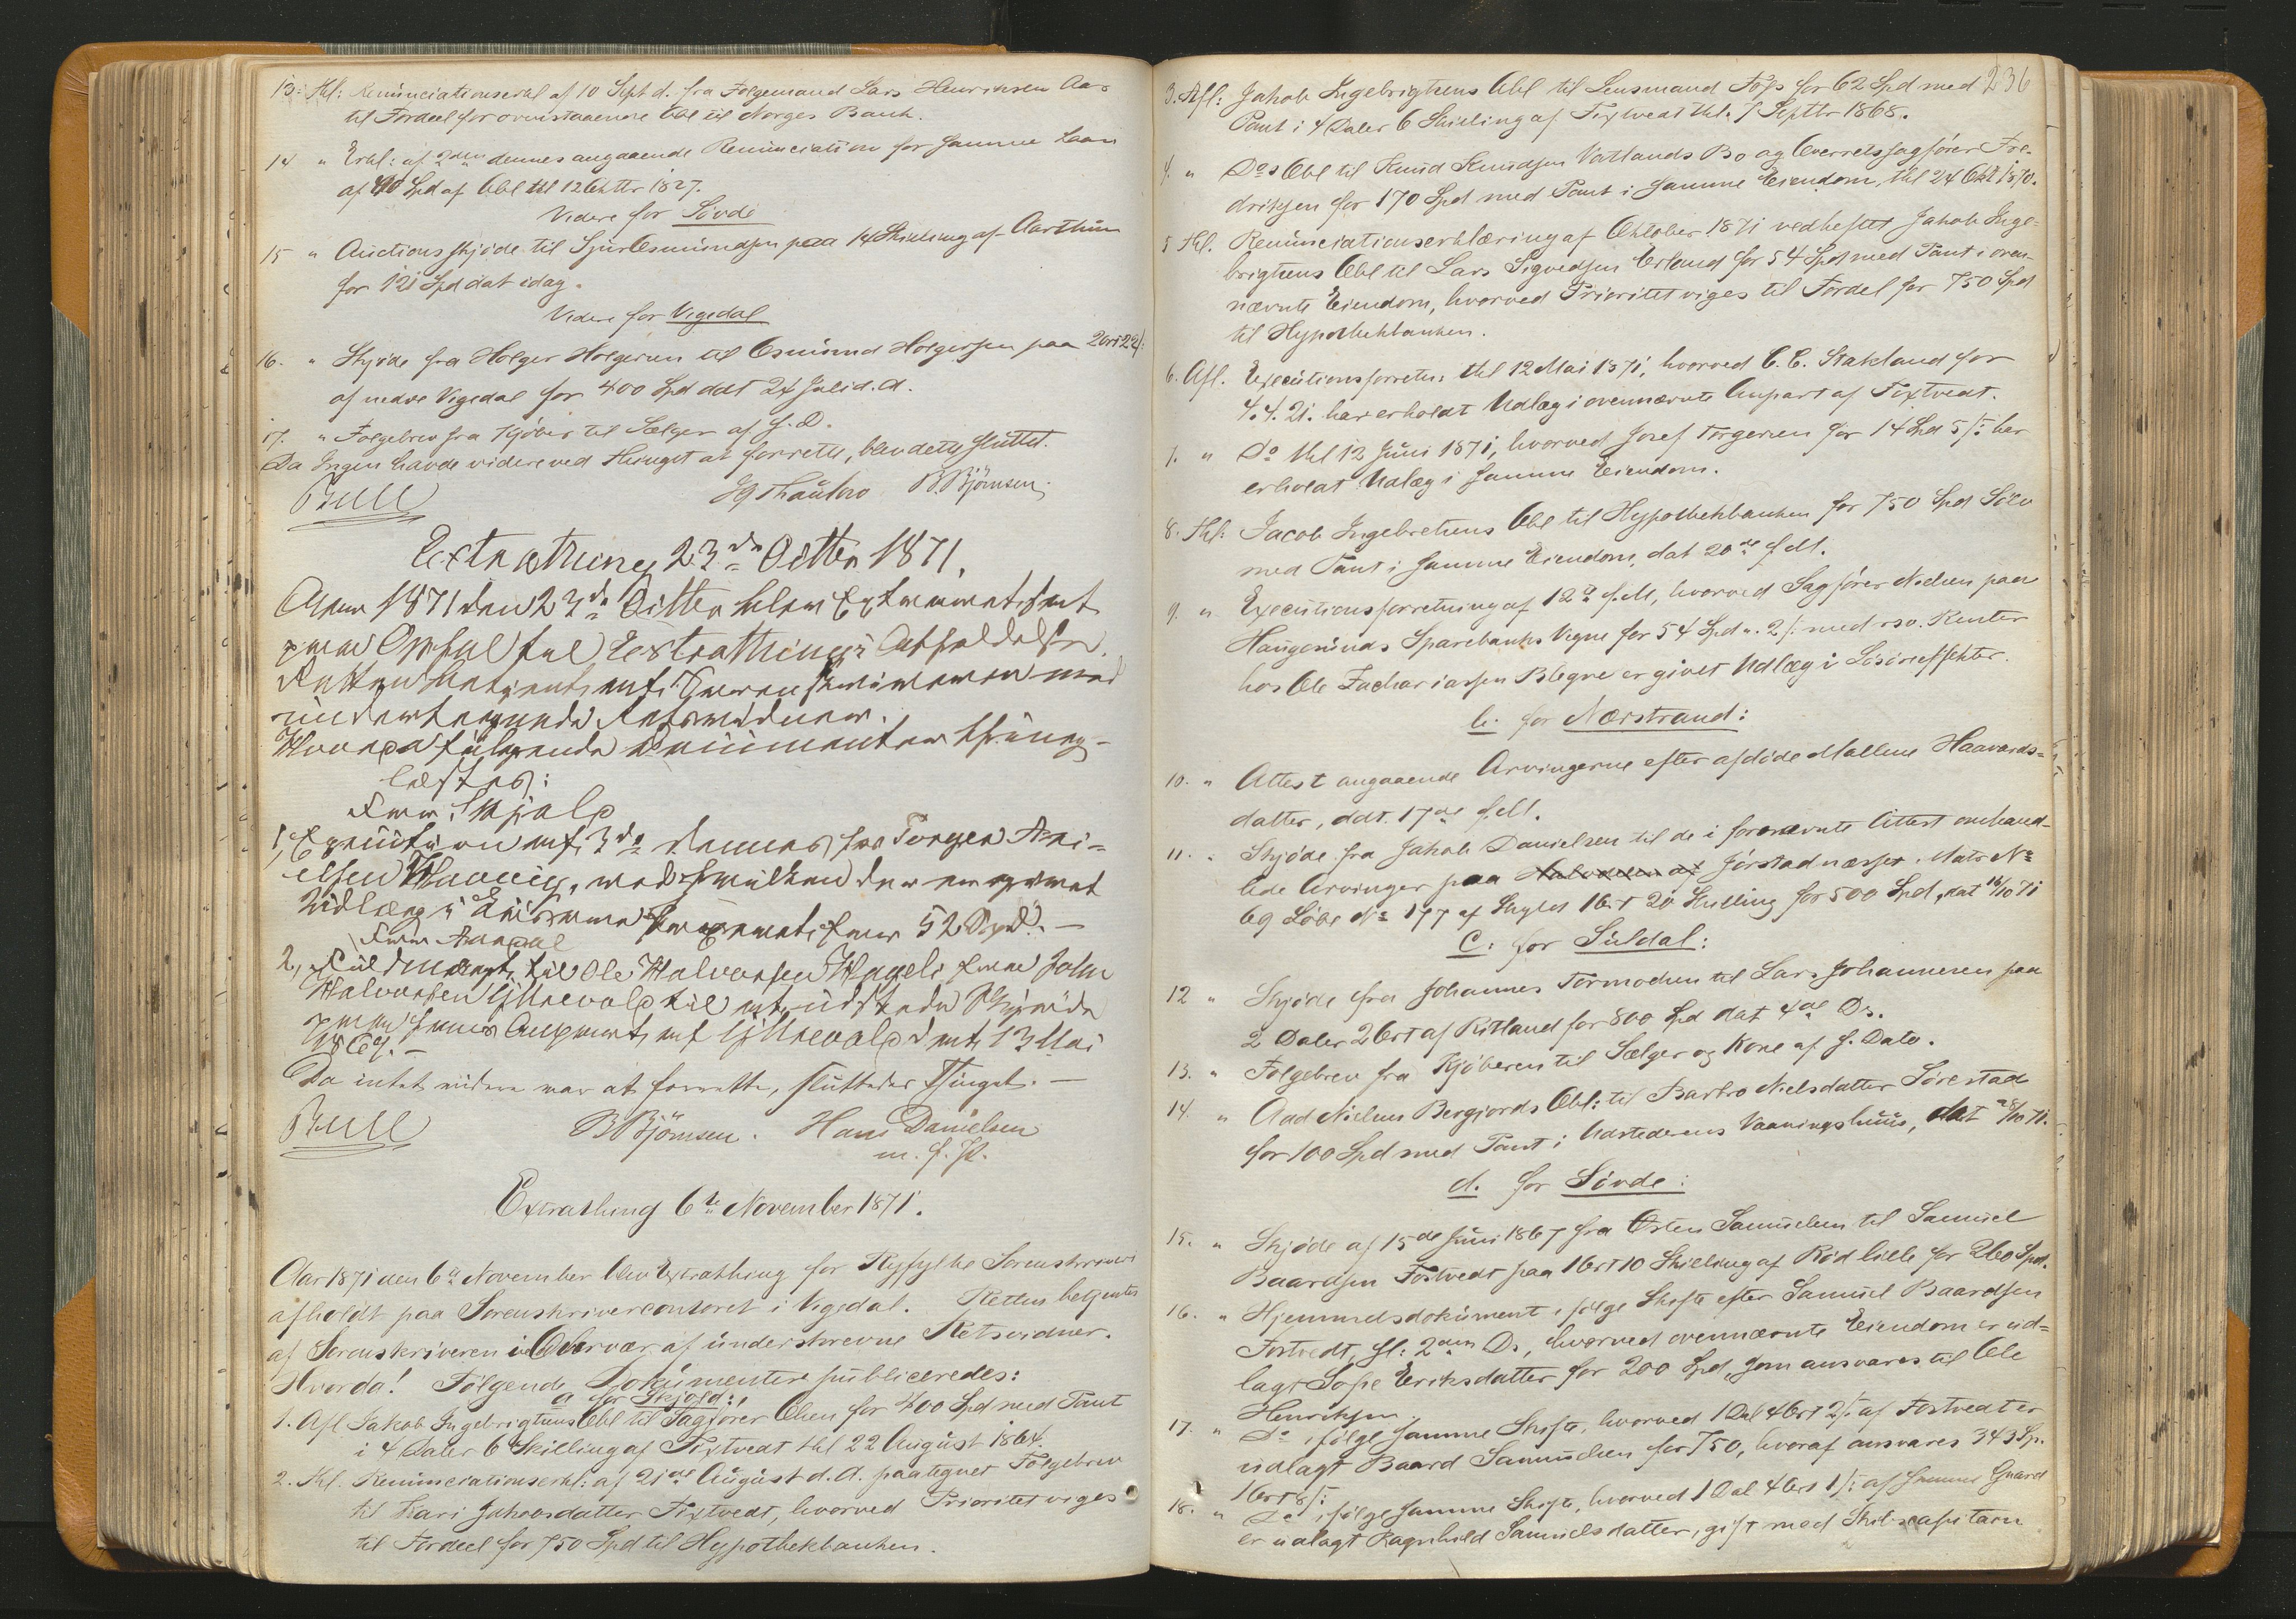 13. Thl: Renunciationserkl af 10 Sept d. fra Folgemand Lars Henriksen Aa-
til Fordeel for ovenstaaende Obl til Norges Bank.
14 " Erkl: af 2den dennes angaaende Renunciation for samme Laan
af 40 Spd af Obl thl 12 Oktbr 1827.
Videre for Søvde
15 " Auctionsskjøde til Sjur Osmundsen paa 14 Skilling af Aarthun
for 121 Spd dat idag.
Videre for Vigedal
16. " Skjøde fra Holger Holgersen til Osmund Holgersen paa 2 Ort 22 /:
af nedre Vigedal for 400 Spd ddt 24 Juli d. A.
17. " Folgebrev fra Kjøber til Sælger af s. D.
Da Ingen havde videre ved Thinget at forrette, blev dette sluttet.
Bull B. Bjørnsen.
Extrathing 23de Octbr 1871.
Aar 1871 den 23de Octbr blev Extraret sat
paa Opsal til Extrathings Afholdelse.
Retten betjent af Sorenskriveren med
undertegnede Retsvidner.
Hvorda følgende Documenter thing-
læstes:
For Skjold
1, Execution af 3de dennes fra Torger Ari-
elsen, ved hvilken der er givet
Udlæg i for 52 Spd. —
For
2, Fuldmagt til Ole Halvorsen for John
Halvorsen til at udstede Skjøde
paa hans Anpart af dat 13 Mai
1869. —
Da intet videre var at forrette, sluttedes Thinget. —
Bull B Bjørnsen. Hans Danielsen
m. f. P.
Extrathing 6te November 1871.
Aar 1871 den 6te November blev Extrathing for Ryfylke Sorenskriveri
afholdt paa Sorenskrivercontoret i Vigedal. Retten betjentes
af Sorenskriveren i Overvær af underskrevne Retsvidner.
Hvorda! Følgende Dokumenter publiceredes:
a for Skjold:
1. Afl Jakob Ingebrigtsens Obl til Sagfører Olsen for 400 Spd med Pant
i 4 Daler 6 Skilling af Fixtvedt thl 22 August 1864.
2. Thl. Renunciationserkl: af 21de August d. A. paategnet Folgebrev
til Kari Jakobsdatter Fixtvedt, hvorved Prioritet viges
til Fordeel for 750 Spd til Hypothekbanken.
236
3. Afl: Jakob Ingebrigtsens Obl til Lensmand for 62 Spd med
Pant i 4 Daler 6 Skilling af Fixtvedt thl. 7 Septbr 1868.
4. " Dos Obl til Knud Knudsen Vatlands Bo og Overretssagfører Fre-
driksen for 170 Spd med Pant i samme Eiendom, thl 24 Okt 1870.
5 Thl. Renunciationserklæring af Oktober 1871 vedheftet Jakob Inge-
brigtsens Obl til Lars Sigvedsen Erland for 54 Spd med Pant i oven-
nævnte Eiendom, hvorved Prioritet viges til Fordel for 750 Spd
til Hypothekbanken.
6. Afl. Executionsforretn: thl 12 Mai 1871, hvorved C. C. Stakland for
4. 4. 21. har erholdt Udlæg i ovennævnte Anpart af Fixtvedt.
7. " Do thl 12 Juni 1871, hvorved Josef Torgersen for 14 Spd 5 /: har
erholdt Udlæg i samme Eiendom.
8. Thl: Jacob Ingebretsens Obl til Hypothekbanken for 750 Spd Sølv
med Pant i samme Eiendom, dat 20de f. M.
9. " Executionsforretning af 12te f. M, hvorved Sagfører Nielsen paa
Haugesunds Sparebanks Vegne for 54 Spd " 2 /: med Renter
hos Ole Zachariassen Blegne er givet Udlæg i Løsøreeffekter.
b. for Nærstrand:
10. " Attest angaaende Arvingerne efter afdøde Mallene Haavards-
datter, ddt. 17de f. M.
11. " Skjøde fra Jakob Danielsen til de i forannævnte Attest omhand-
lede Arvinger paa Halvdelen af Jørstadnæsset. Matr No
69 Løbe No 177 af Skyld 1 Ort 20 Skilling for 500 Spd, dat 16/10 71
C: for Suldal:
12 " Skjøde fra Johannes Tormodsen til Lars Johannesen paa
2 Daler 2 Ort af Ritland for 800 Spd dat 4de Ds.
13. " Folgebrev fra Kjøberen til Sælger og Kone af s. Dato.
14. " Aad Nielsen Bergjords Obl: til Barbro Nielsdatter Sørestad
for 100 Spd med Pant i Udstederens Vaaningshuus, dat 28/10 71.
d. for Søvde:
15. " Skjøde af 15de Juni 1867 fra Østen Samuelsen til Samuel
Baardsen Fostvedt paa 1 Ort 10 Skilling af Rød lille for 260 Spd.
16. " Hjemmelsdokument ifølge Skifte efter Samuel Baardsen
Fostvedt, sl: 2den Ds, hvorved ovennævnte Eiendom er ud-
lagt Sofie Eriksdatter for 200 Spd, som ansvares til Ole
Henriksen
17. " Do ifølge samme Skifte, hvorved 1 Dal 4 Ort 2 /: af Fostvedt er
udlagt Baard Samuelsen for 750, hvoraf ansvares 343 Sp.
1 Ort 8 /:
18. " Do ifølge samme Skifte, hvorved 1 Dal 4 Ort 1 /: af samme Gaard
er udlagt Ragnhild Samuelsdatter, gift med Skibscapitain